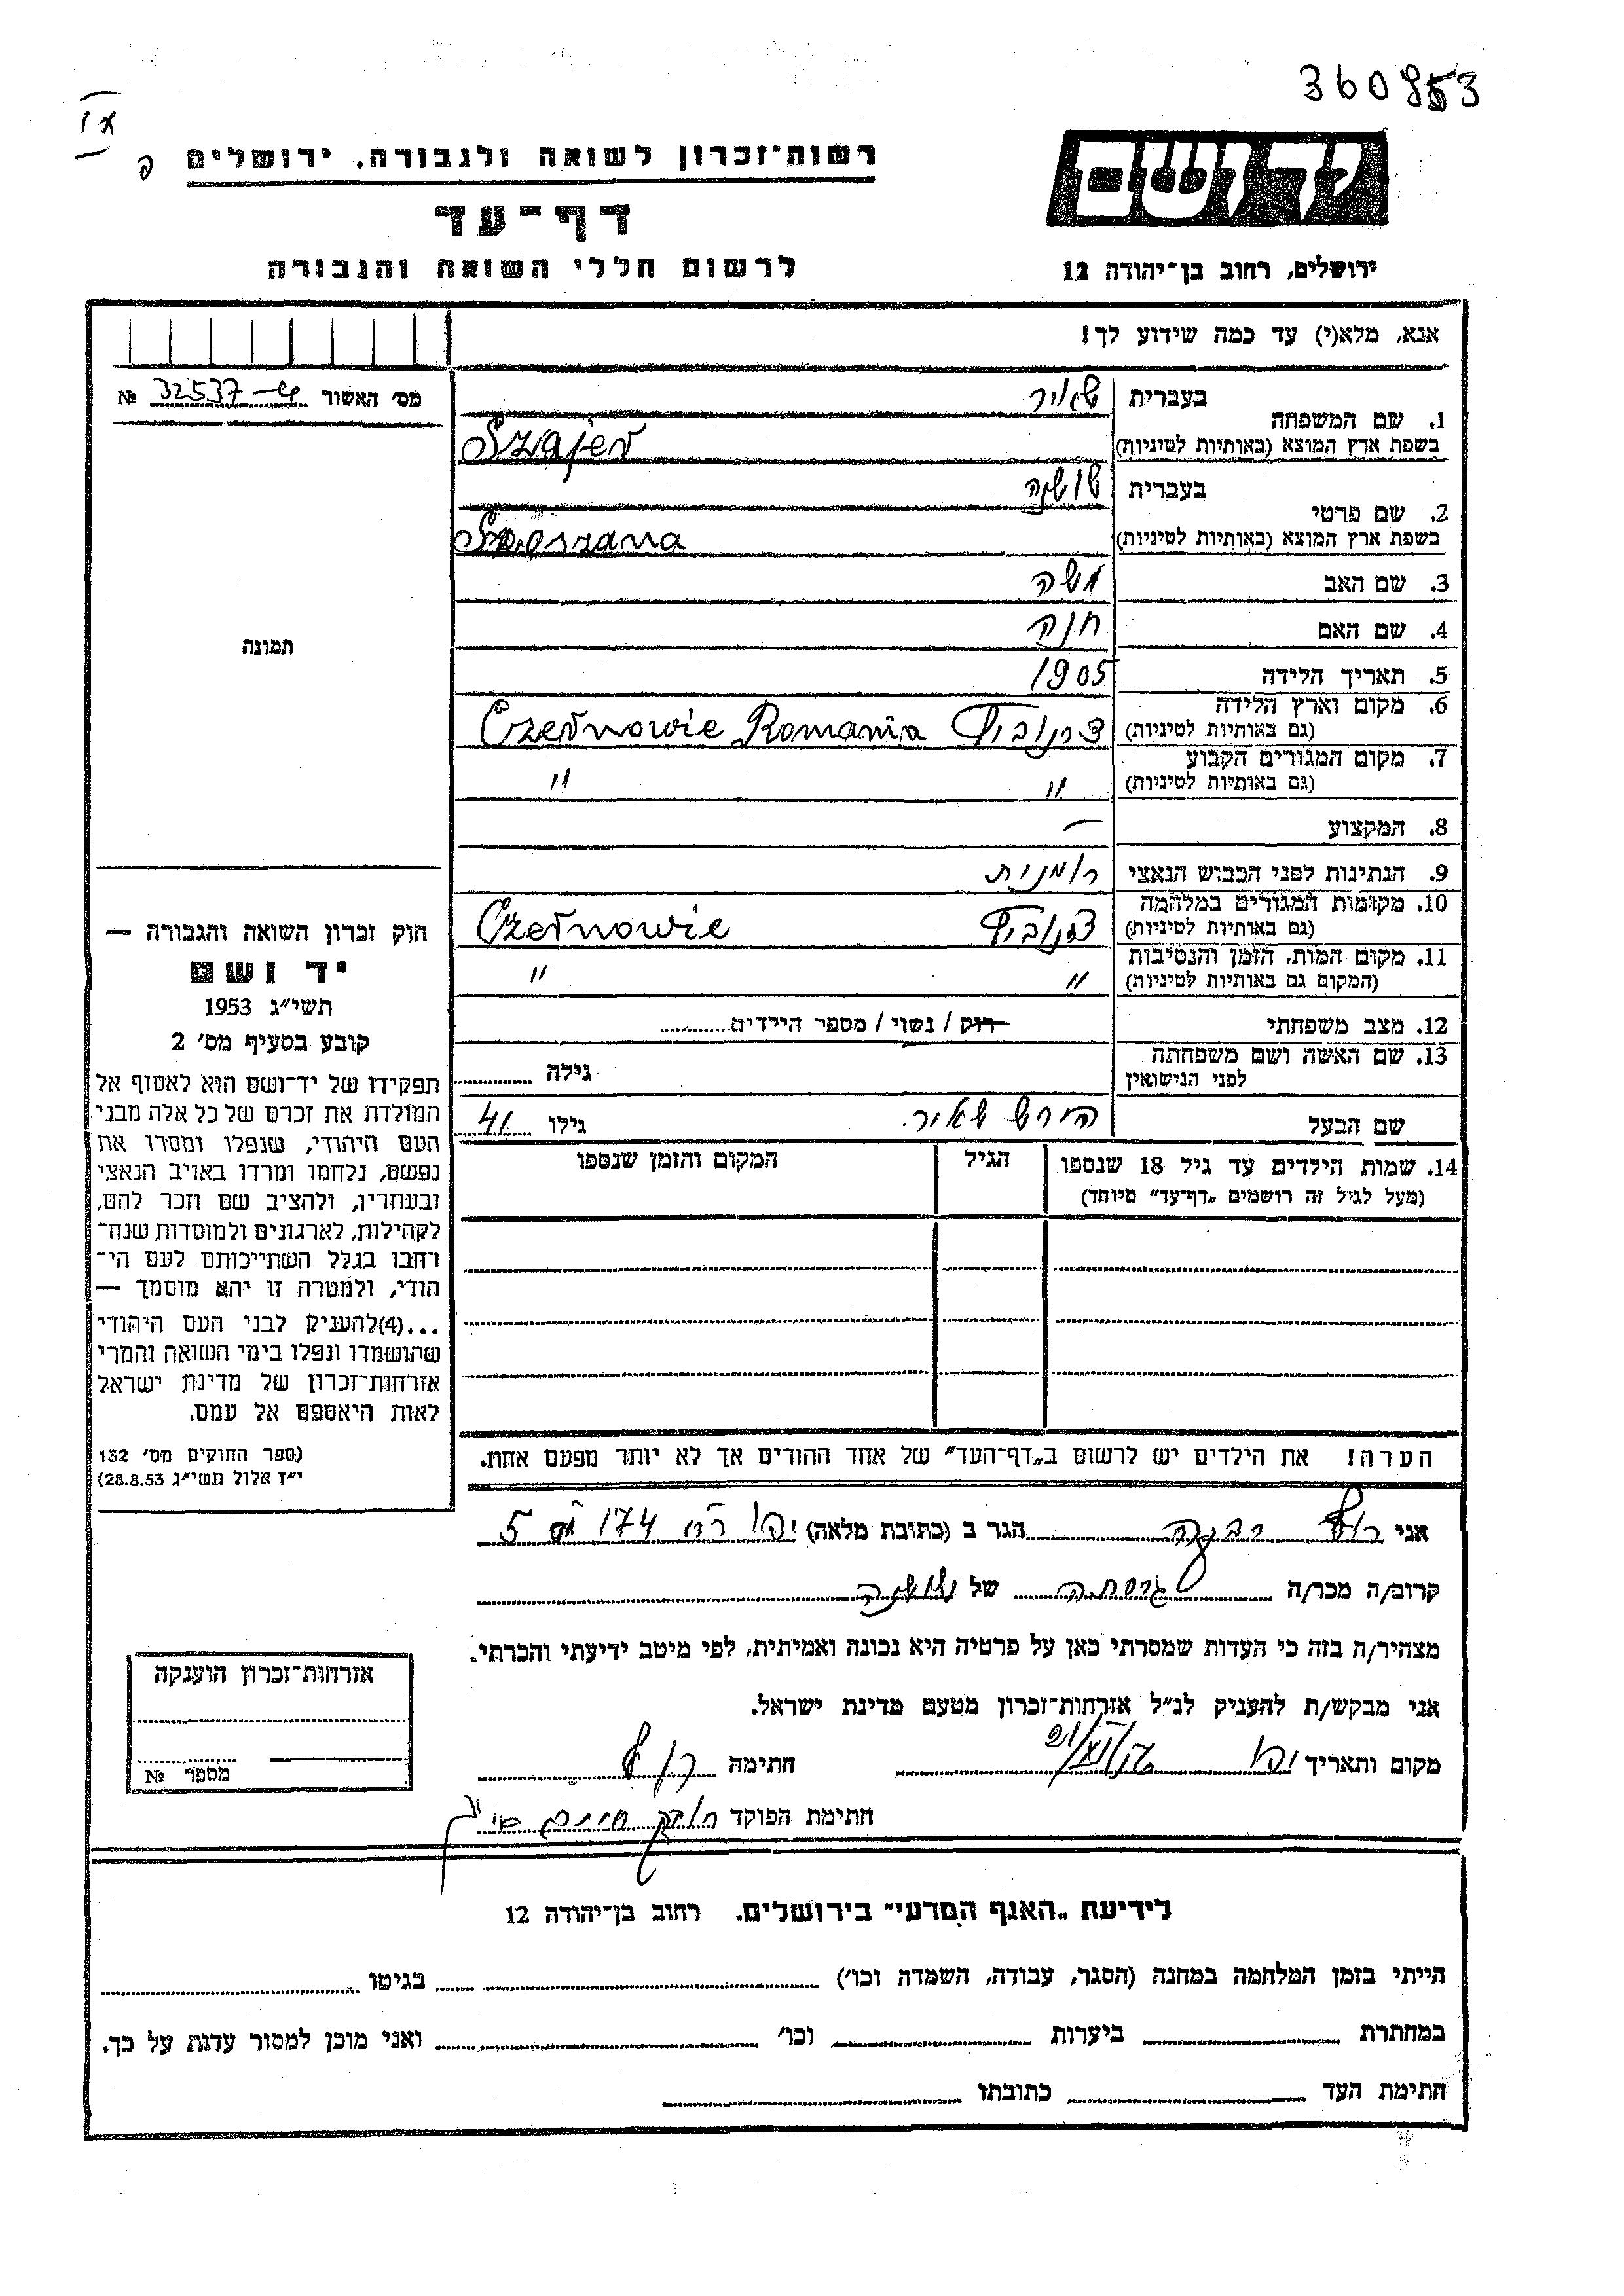 360953
רשות־זכרון לשואה ולגבורה, ירושלים
יד ושם
דף־עד
לרשום חללי השואה והגבורה
ירושלים, רחוב בן־יהודה 12
אנא, מלא(י) עד כמה שידוע לך!
מס׳ האשור № 32537
1. שם המשפחה בעברית
בשפת ארץ המוצא (באותיות לטיניות) Szajer
2. שם פרטי בעברית שושנה
בשפת ארץ המוצא (באותיות לטיניות) Szoszana
3. שם האב משה
4. שם האם חנה
5. תאריך הלידה 1905
6. מקום וארץ הלידה (גם באותיות לטיניות) צרנוביץ Czernowic Romania
7. מקום המגורים הקבוע (גם באותיות לטיניות) " "
8. המקצוע —
9. הנתינות לפני הכבוש הנאצי רומנית
10. מקומות המגורים במלחמה (גם באותיות לטיניות) צרנוביץ Czernowic
11. מקום המות, הזמן והנסיבות (המקום גם באותיות לטיניות) " "
12. מצב משפחתי רוק / נשוי / מספר הילדים
13. שם האשה ושם משפחתה לפני הנישואין גילה
שם הבעל הירש גילו 41
14. שמות הילדים עד גיל 18 שנספו (מעל לגיל זה רושמים „דף־עד" מיוחד) הגיל המקום והזמן שנספו
הערה! את הילדים יש לרשום ב„דף־העד" של אחד ההורים אך לא יותר מפעם אחת.
תמונה
חוק זכרון השואה והגבורה —
יד ושם
תשי״ג 1953
קובע בסעיף מס׳ 2
תפקידו של יד־ושם הוא לאסוף אל
המולדת את זכרם של כל אלה מבני
העם היהודי, שנפלו ומסרו את
נפשם, נלחמו ומרדו באויב הנאצי
ובעוזריו, ולהציב שם וזכר להם,
לקהילות, לארגונים ולמוסדות שנח־
רחבו בגלל השתייכותם לעם הי־
הודי, ולמטרה זו יהא מוסמך —
...(4)להעניק לבני העם היהודי
שהושמדו ונפלו בימי השואה והמרי
אזרחות־זכרון של מדינת ישראל
לאות היאספם אל עמם.
(ספר החוקים מס׳ 132
י״ז אלול תשי״ג 28.8.53)
אני רבקה הגר ב (כתובת מלאה) יפו 174 5
קרוב/ה מכר/ה של שושנה
מצהיר/ה בזה כי העדות שמסרתי כאן על פרטיה היא נכונה ואמיתית, לפי מיטב ידיעתי והכרתי.
אני מבקש/ת להעניק לנ״ל אזרחות־זכרון מטעם מדינת ישראל.
מקום ותאריך יפו חתימה
חתימת הפוקד
אזרחות־זכרון הוענקה
מספר №
לידיעת „האגף המדעי" בירושלים, רחוב בן־יהודה 12
הייתי בזמן המלחמה במחנה (הסגר, עבודה, השמדה וכו׳) בגיטו
במחתרת ביערות וכו׳ ואני מוכן למסור עדות על כך.
חתימת העד כתובתו